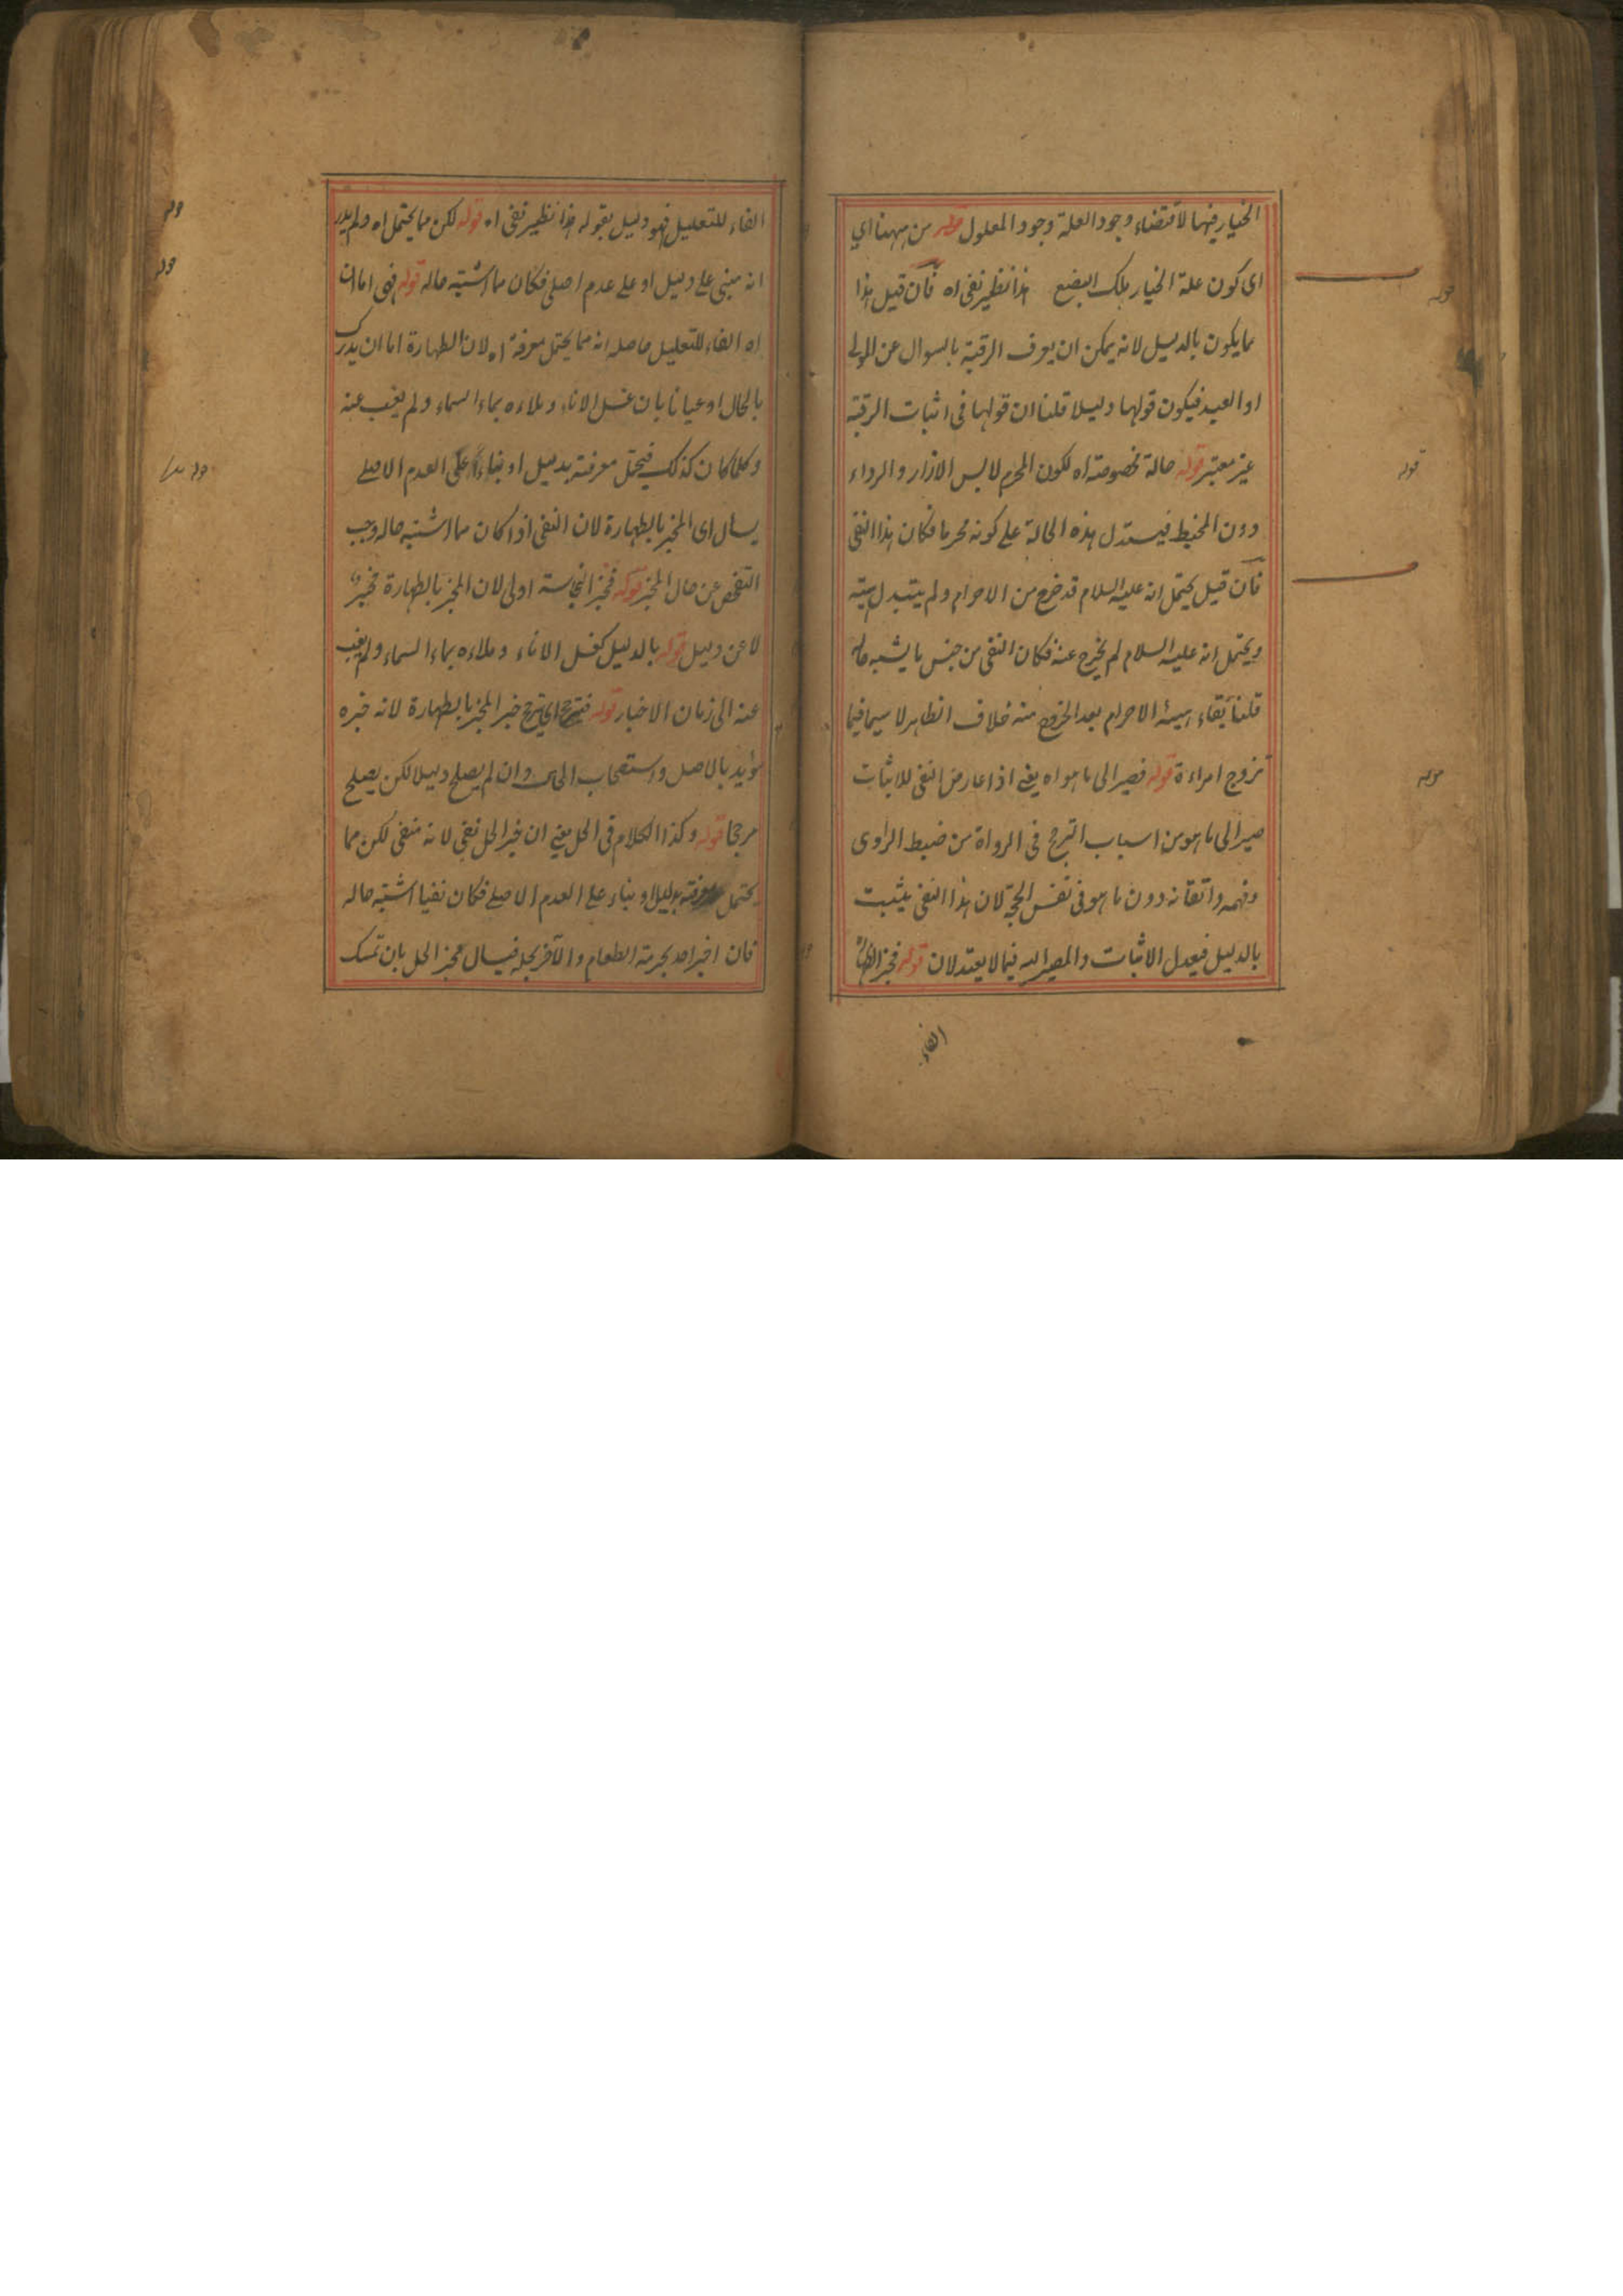 الخيار فيها لاقتضاء وجود العلة وجود المعلول قوله من ههنا اي
اى كون علة الخيار ملك البضع هذا نظير نفى اه فان قيل هذا
مما يكون بالدليل لانه يمكن ان يعرف الرقية بالسوال عن المولى
او العبد فيكون قولهما دليلا قلنا ان قولهما فى اثبات الرقية
غير معتبر قوله حالة مخصوصة اه لكون المحرم لابس الازار و الرداء
دون المخيط فيستدل بهذه الحالة على كونه محرما فكان هذا النفى
فان قيل يحتمل انه عليه السلام قد خرج من الاحرام ولم يتبدل هيئته
ويحتمل انه عليه السلام لم يخرج عنه فكان النفى من جنس ما يشبه حاله
قلنا بقاء هيئة الاحرام بعد الخروج منه خلاف الظاهر لا سيما فيما
تزوج امراءة قوله فصير الى ما هو اه يعنى اذا عارض النفى للاثبات
صير الى ما هو من اسباب الترجح فى الرواة من ضبط الراوى
وفهمه واتقانه دون ما هو فى نفس الحجة لان هذا النفى يثبت
بالدليل فيعدل الاثبات والمصير اليه فيما لا يعتد لان قوله فخبر الطهارة
الفاء
قوله
قوله
قوله
الفاء للتعليل فهو دليل بقوله هذا نظير نفى اه قوله لكن مما يحتمل اه ولم يدر
انه مبنى على دليل او على عدم اصلى فكان مما اشتبه حاله قوله فهى اما ان
اه الفاء للتعليل حاصله انه مما يحتمل معرفة اه لان الطهارة اما ان يدرك
بالحال او عيانا بان غسل الاناء و ملاءه بماء السماء ولم يغب عنه
وكلما كان كذلك فيحتمل معرفته بدليل او بناء على العدم الاصلى
يسأل اى المخبر بالطهارة لان النفى اذا كان مما اشتبه حاله وجب
التفحص عن حال المخبر قوله فخبر النجاسة اولى لان المخبر بالطهارة مخبر
لا عن دليل قوله بالدليل كغسل الاناء و ملاءه بماء السماء ولم يغب
عنه الى زمان الاخبار قوله فترجح اى يرجح خبر المخبر بالطهارة لانه خبره
مؤايد بالاصل واستصحاب الحال وان لم يصلح دليلا لكن يصلح
مرجحا قوله وكذا الكلام فى الحل يعنى ان خبر الحل نفى لانه منفى لكن مما
يحتمل معرفته بدليل او بناء على العدم الاصلى فكان نفيا اشتبه حاله
فان اخبر احد بحرمة الطعام والآخر بحله فيسال مخبر الحل بان تمسك